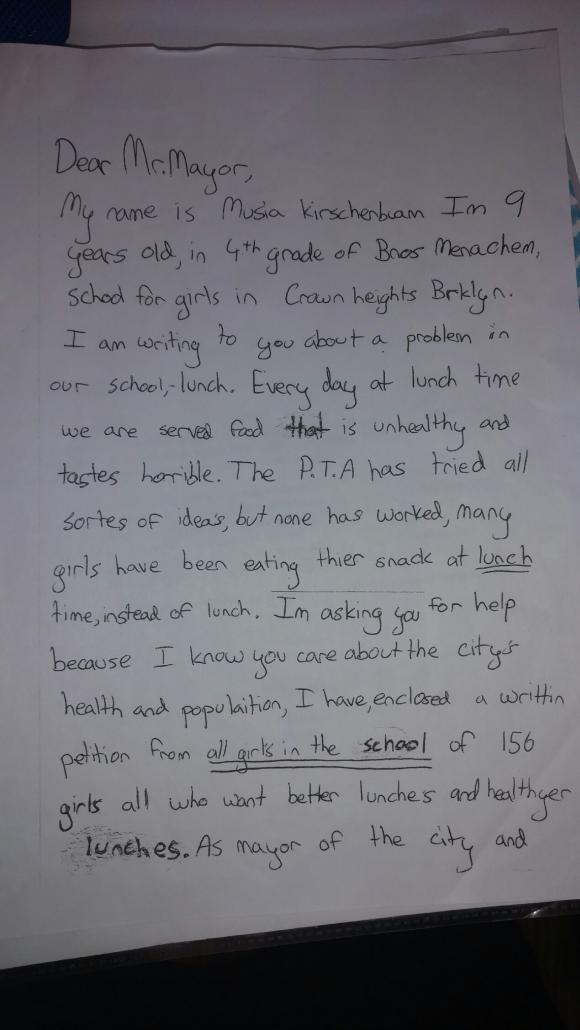 Dear Mr. Mayor,
My name is Musia Kirschenbuam Im 9
years old, in 4th grade of Bnos Menachem,
School for girls in Crown heights Brklyn.
I am writing to you about a problem in
our school,-lunch. Every day at lunch time
we are served food that is unhealthy and
tastes horrible. The P.T.A has tried all
sortes of idea's, but none has worked, many
girls have been eating thier snack at lunch
time, instead of lunch. Im asking you for help
because I know you care about the city's
health and populaition, I have, enclosed a writtin
petition from all girls in the school of 156
girls all who want better lunche's and healthyer
lunches. As mayor of the city and